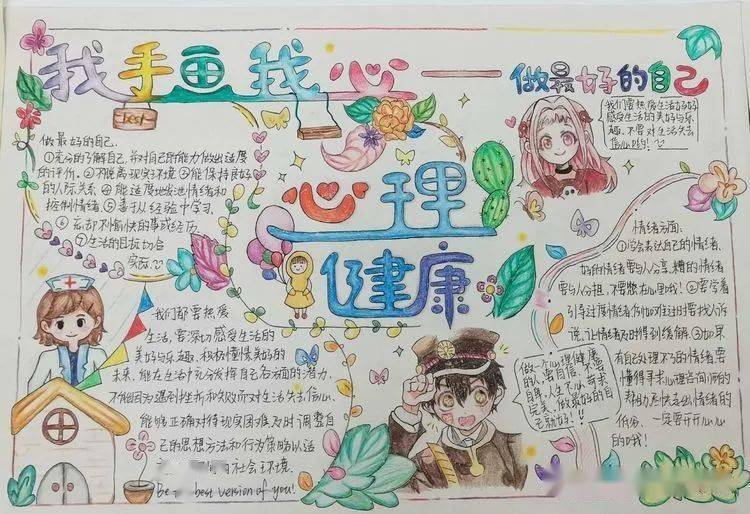 我手画我心——做最好的自己
best
心理
健康
做最好的自己
①充分的了解自己,并对自己的能力做出适度
的评价.②不脱离现实环境③能保持良好
的人际关系④能适度地发泄情绪和
控制情绪⑤善于从经验中学习.
⑥忘却不愉快的事或经历.
⑦生活的目标切合
实际.
我们要热爱生活好好
感受生活的美好与乐
趣,不要对生活失去
信心哟!
我们都要热爱
生活,要深切感受生活的
美好与乐趣,积极憧憬美好的
未来,能在生活中充分发挥自己各方面的潜力,
不能因为遇到挫折和失败而对生活失去信心.
能够正确对待现实困难,及时调整自
己的思想方法和行为策略以适
的社会环境.
Be best version of you!
做一个心理健康
的人,要自信,要
自尊,人生不必苛求
完美,做最好的自
己就好!
情绪方面:
①学会表达自己的情绪,
好的情绪要与人分享,糟的情绪
要与人分担,不要憋在心里哦!②要学着
引导过度情绪,伤心过往时要找人诉
说,让情绪及时得到缓解.③如果
有自己处理不了的情绪,要
懂得寻求心理咨询师的
帮助,尽快走出情绪的
低谷,一定要开开心心
的哦!